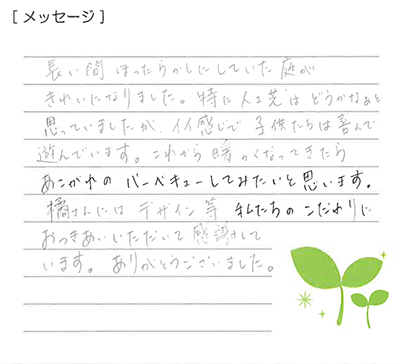 [メッセージ]
長い間 ほったらかしにしていた 庭が
きれいになりました。特に人工芝は どうかなぁと
思っていましたが、イイ感じで 子供たちは喜んで
遊んでいます。これから 暖かくなってきたら
あこがれの バーベキューしてみたいと思います。
橘さんには デザイン等 私たちの こだわりに
おつきあいいただいて 感謝して
います。ありがとうございました。